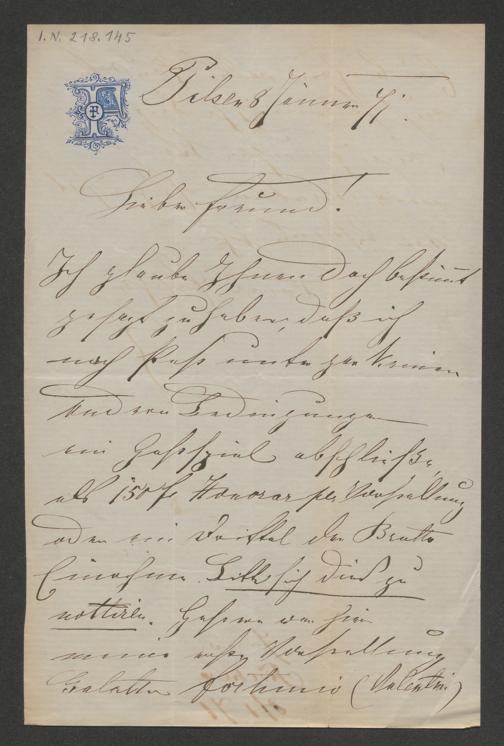 I.N. 218.145
Pilsen 8 Jänner 71.
Lieber Freund!
Ich glaube Ihnen doch bestimmt
gesagt zu haben, daß ich
nach Pest unter gar keinen
anderen Bedingungen
ein Gastspiel abschließe,
als 150 f Honorar per Vorstellung
oder ein Drittel der Brutto
Einahme. Bitte sich dies zu
nottiren. Gestern war hier
meine erste Vorstellung
(Valentin)